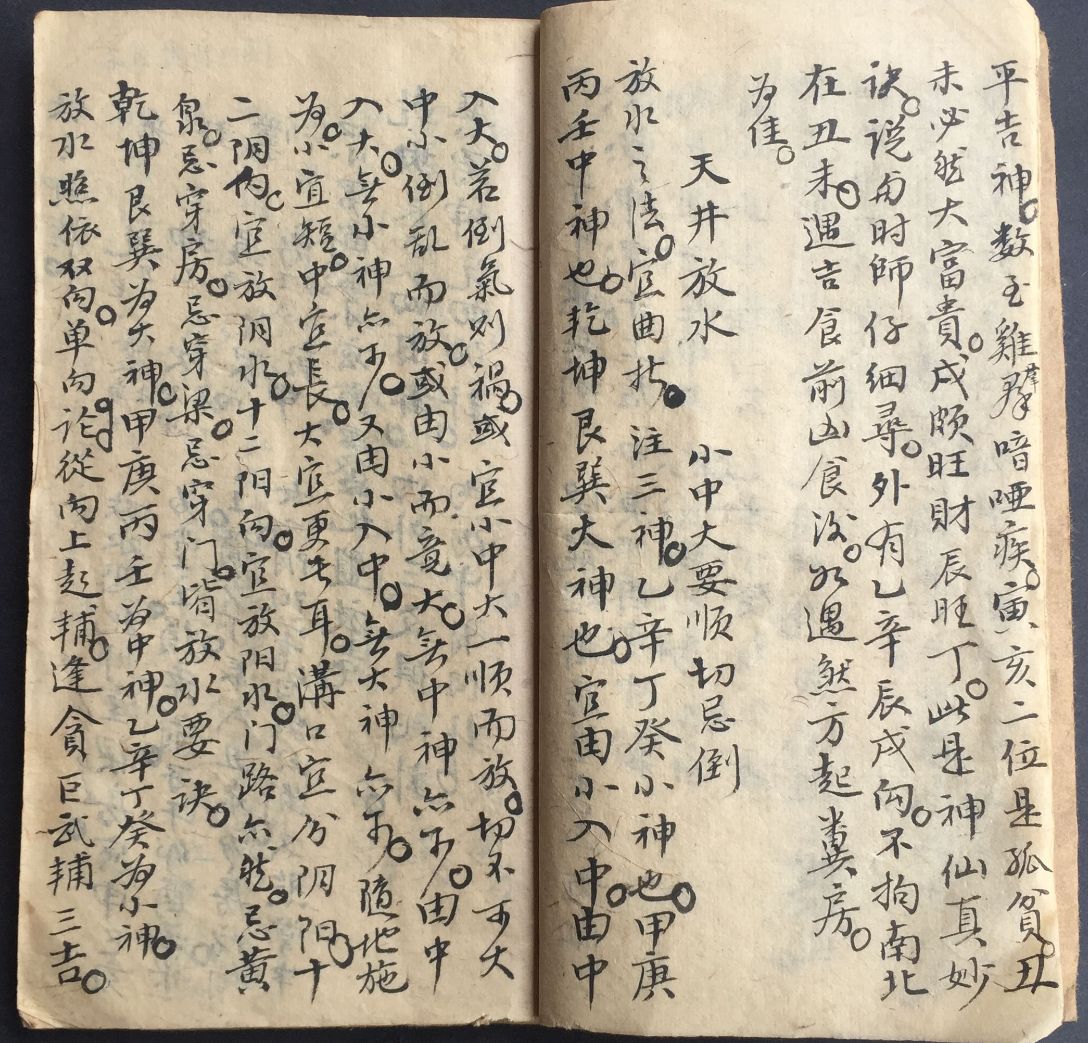 平吉神。数至雞群喑啞疾。寅亥二位是孤貧。丑
未必然大富貴。戌颇旺財辰旺丁。此是神仙真妙
诀。说与时師仔细尋。外有乙辛辰戌向。不拘南北
在丑未。遇吉食前凶食后。如遇煞方起糞房。
为佳。
天井放水 小中大要顺切忌倒
放水之法。宜曲折。注三神。乙辛丁癸小神也。甲庚
丙壬中神也。乾坤艮巽大神也。宜由小入中。由中
入大。若倒氣则禍。或宜小中大一顺而放。切不可大
中小倒乱而放。或由小而竟大。無中神亦可。由中
入大。無小神亦可。又由小入中。無大神亦可。隨地施
为。小宜短。中宜長。大宜更长耳。溝口宜分阴阳。十
二阴向。宜放阴水。十二阳向。宜放阳水。门路亦然。忌黄
泉。忌穿房。忌穿梁。忌穿门。皆放水要诀。
乾坤艮巽为大神。甲庚丙壬为中神。乙辛丁癸为小神。
放水照依双向。单向论。從向上起輔。逢貪巨武輔三吉。